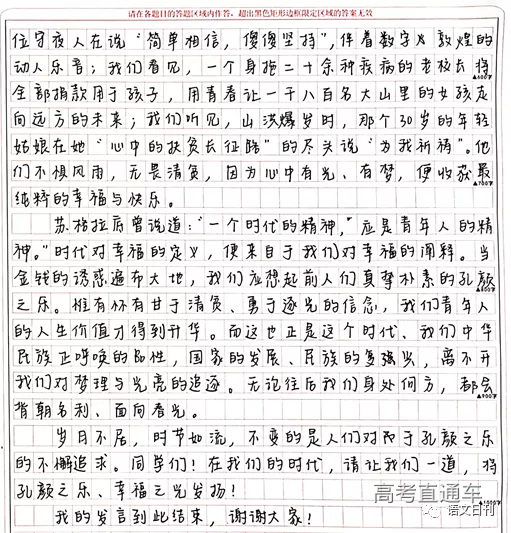 请在各题目的答题区域内作答，超出黑色矩形边框限定区域的答案无效
位守夜人在说“简单相信，傻傻坚持”，伴着数字义敦煌的
动人乐音；我们看见，一个身抱二十余种疾病的老校长将
▲600字
全部捐款用于孩子，用青春让一千八百名大山里的女孩走
向远方的未来；我们听见，山洪爆岁时，那个30岁的年轻
姑娘在她“心中的扶负长征路”的尽头说“为我祈祷”。他
们不惧风雨，无畏清贫，因为心中有光、有梦，便收获最
▲700字
纯粹的幸福与快乐。
苏格拉底曾说道：“一个时代的精神，”应是青年人的精
神。”时代对幸福的定义，便来自于我们对幸福的阐释。当
金钱的诱惑遍布大地，我们应想起前人们真挚朴素的孔颜
▲800字
之乐。惟有怀有甘于清贫、勇于逐光的信念，我们青年人
的人生价值才得到升华。而这也正是这个时代、我们中华
民族正呼唤的品性，国家的发展、民族的复强兴，离不开
我们对梦理与光亮的追逐。无论往后我们身处何方，都会
▲900字
背朝名利、面向春光。
岁月不居，时节如流，不变的是人们对于孔颜之乐
的不懈追求。同学们！在我们的时代，请让我们一道，将
孔颜之乐、幸福之光发扬！
▲1000字
我的发言到此结束，谢谢大家！
高考直通车
语文日刊